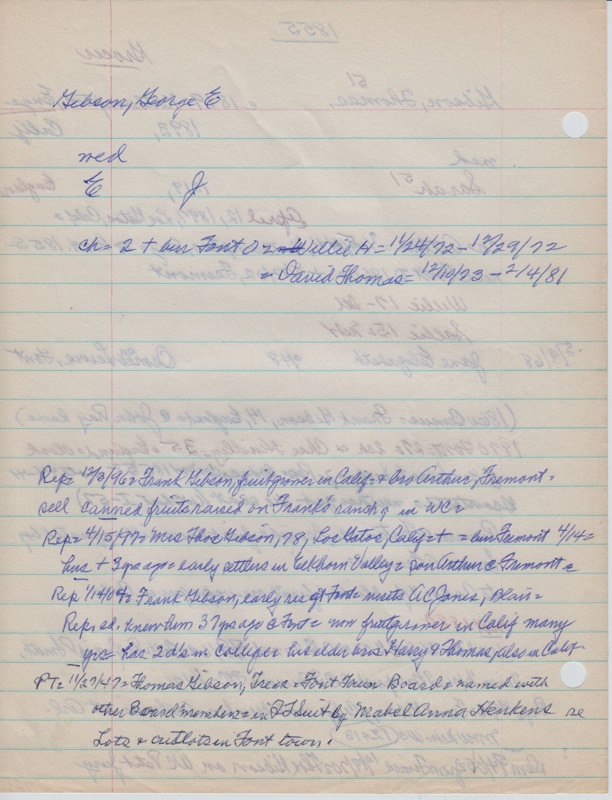 Gibson, George E
med
E J
ch = 2 + bur Font O = Willie H = 1/24/72 - 12/29/72
= David Thomas = 12/10/73 - 2/4/81
Rep = 12/3/96 = Frank Gibson, fruitgrower in Calif = & bro Arthur, Fremont =
sell canned fruits raised on Frank's ranch, in WC =
Rep = 4/15/97 = Mrs Thos Gibson, 78, Los Gatos, Calif = + = bur Fremont 4/14 =
hus + 3 ya ago = early settlers in Elkhorn Valley = son Arthur @ Fremont =
Rep 1/14/04 = Frank Gibson, early res of Font = meets A C Jones,
Rep. ed. knew him 37 ya ago @ Font = now fruitgrower in Calif many
yrs = has 2 d's in college = his elder bros Harry & Thomas, also in Calif =
PT = 11/27/47 = Thomas Gibson, Treas = Font Town Board = named with
other Board members = in suit by Mabel Anna Henkens re
Lots & outlots in Font town.